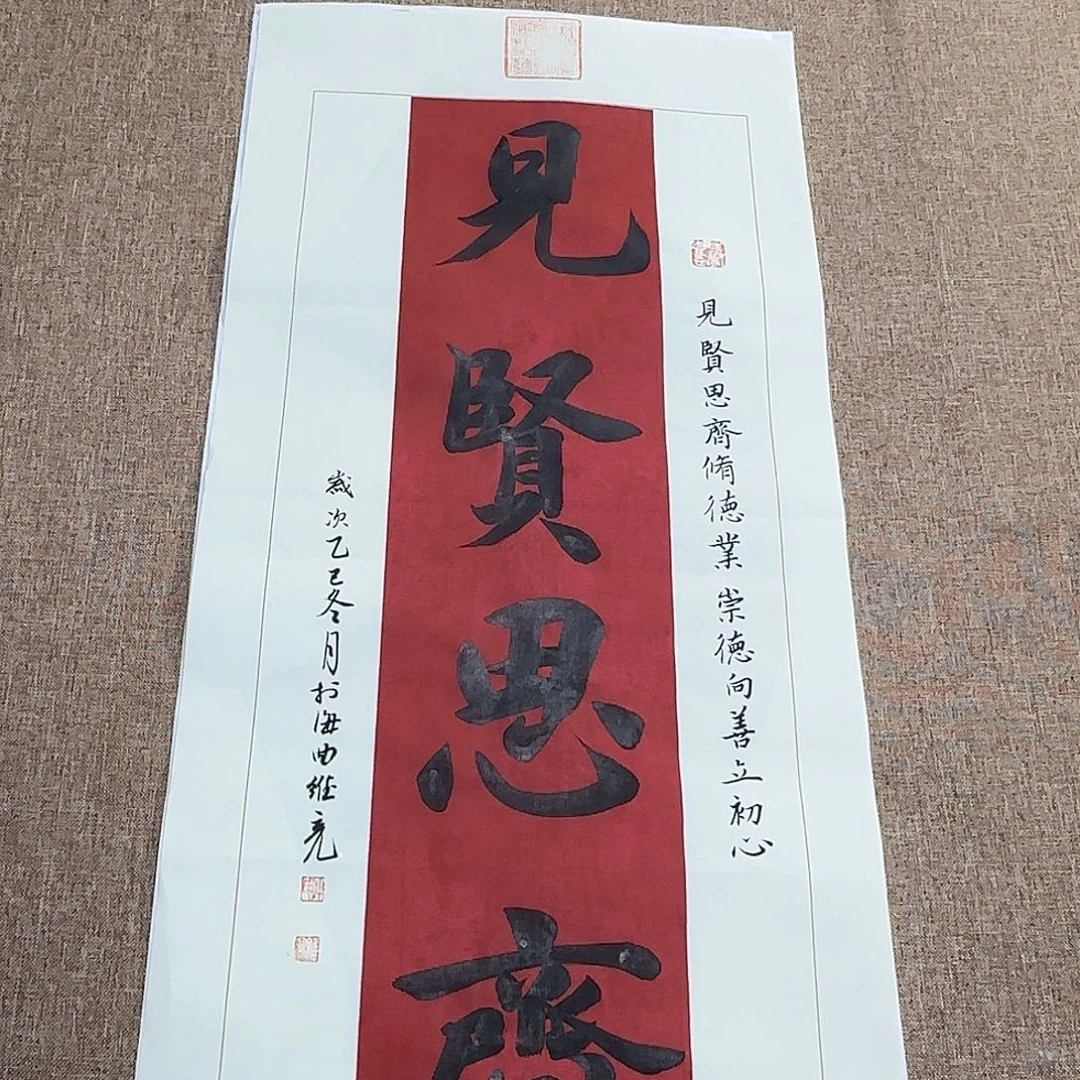 見賢思齊脩德業崇德向善立初心
見賢思齊
歲次乙巳冬月於海曲維亮